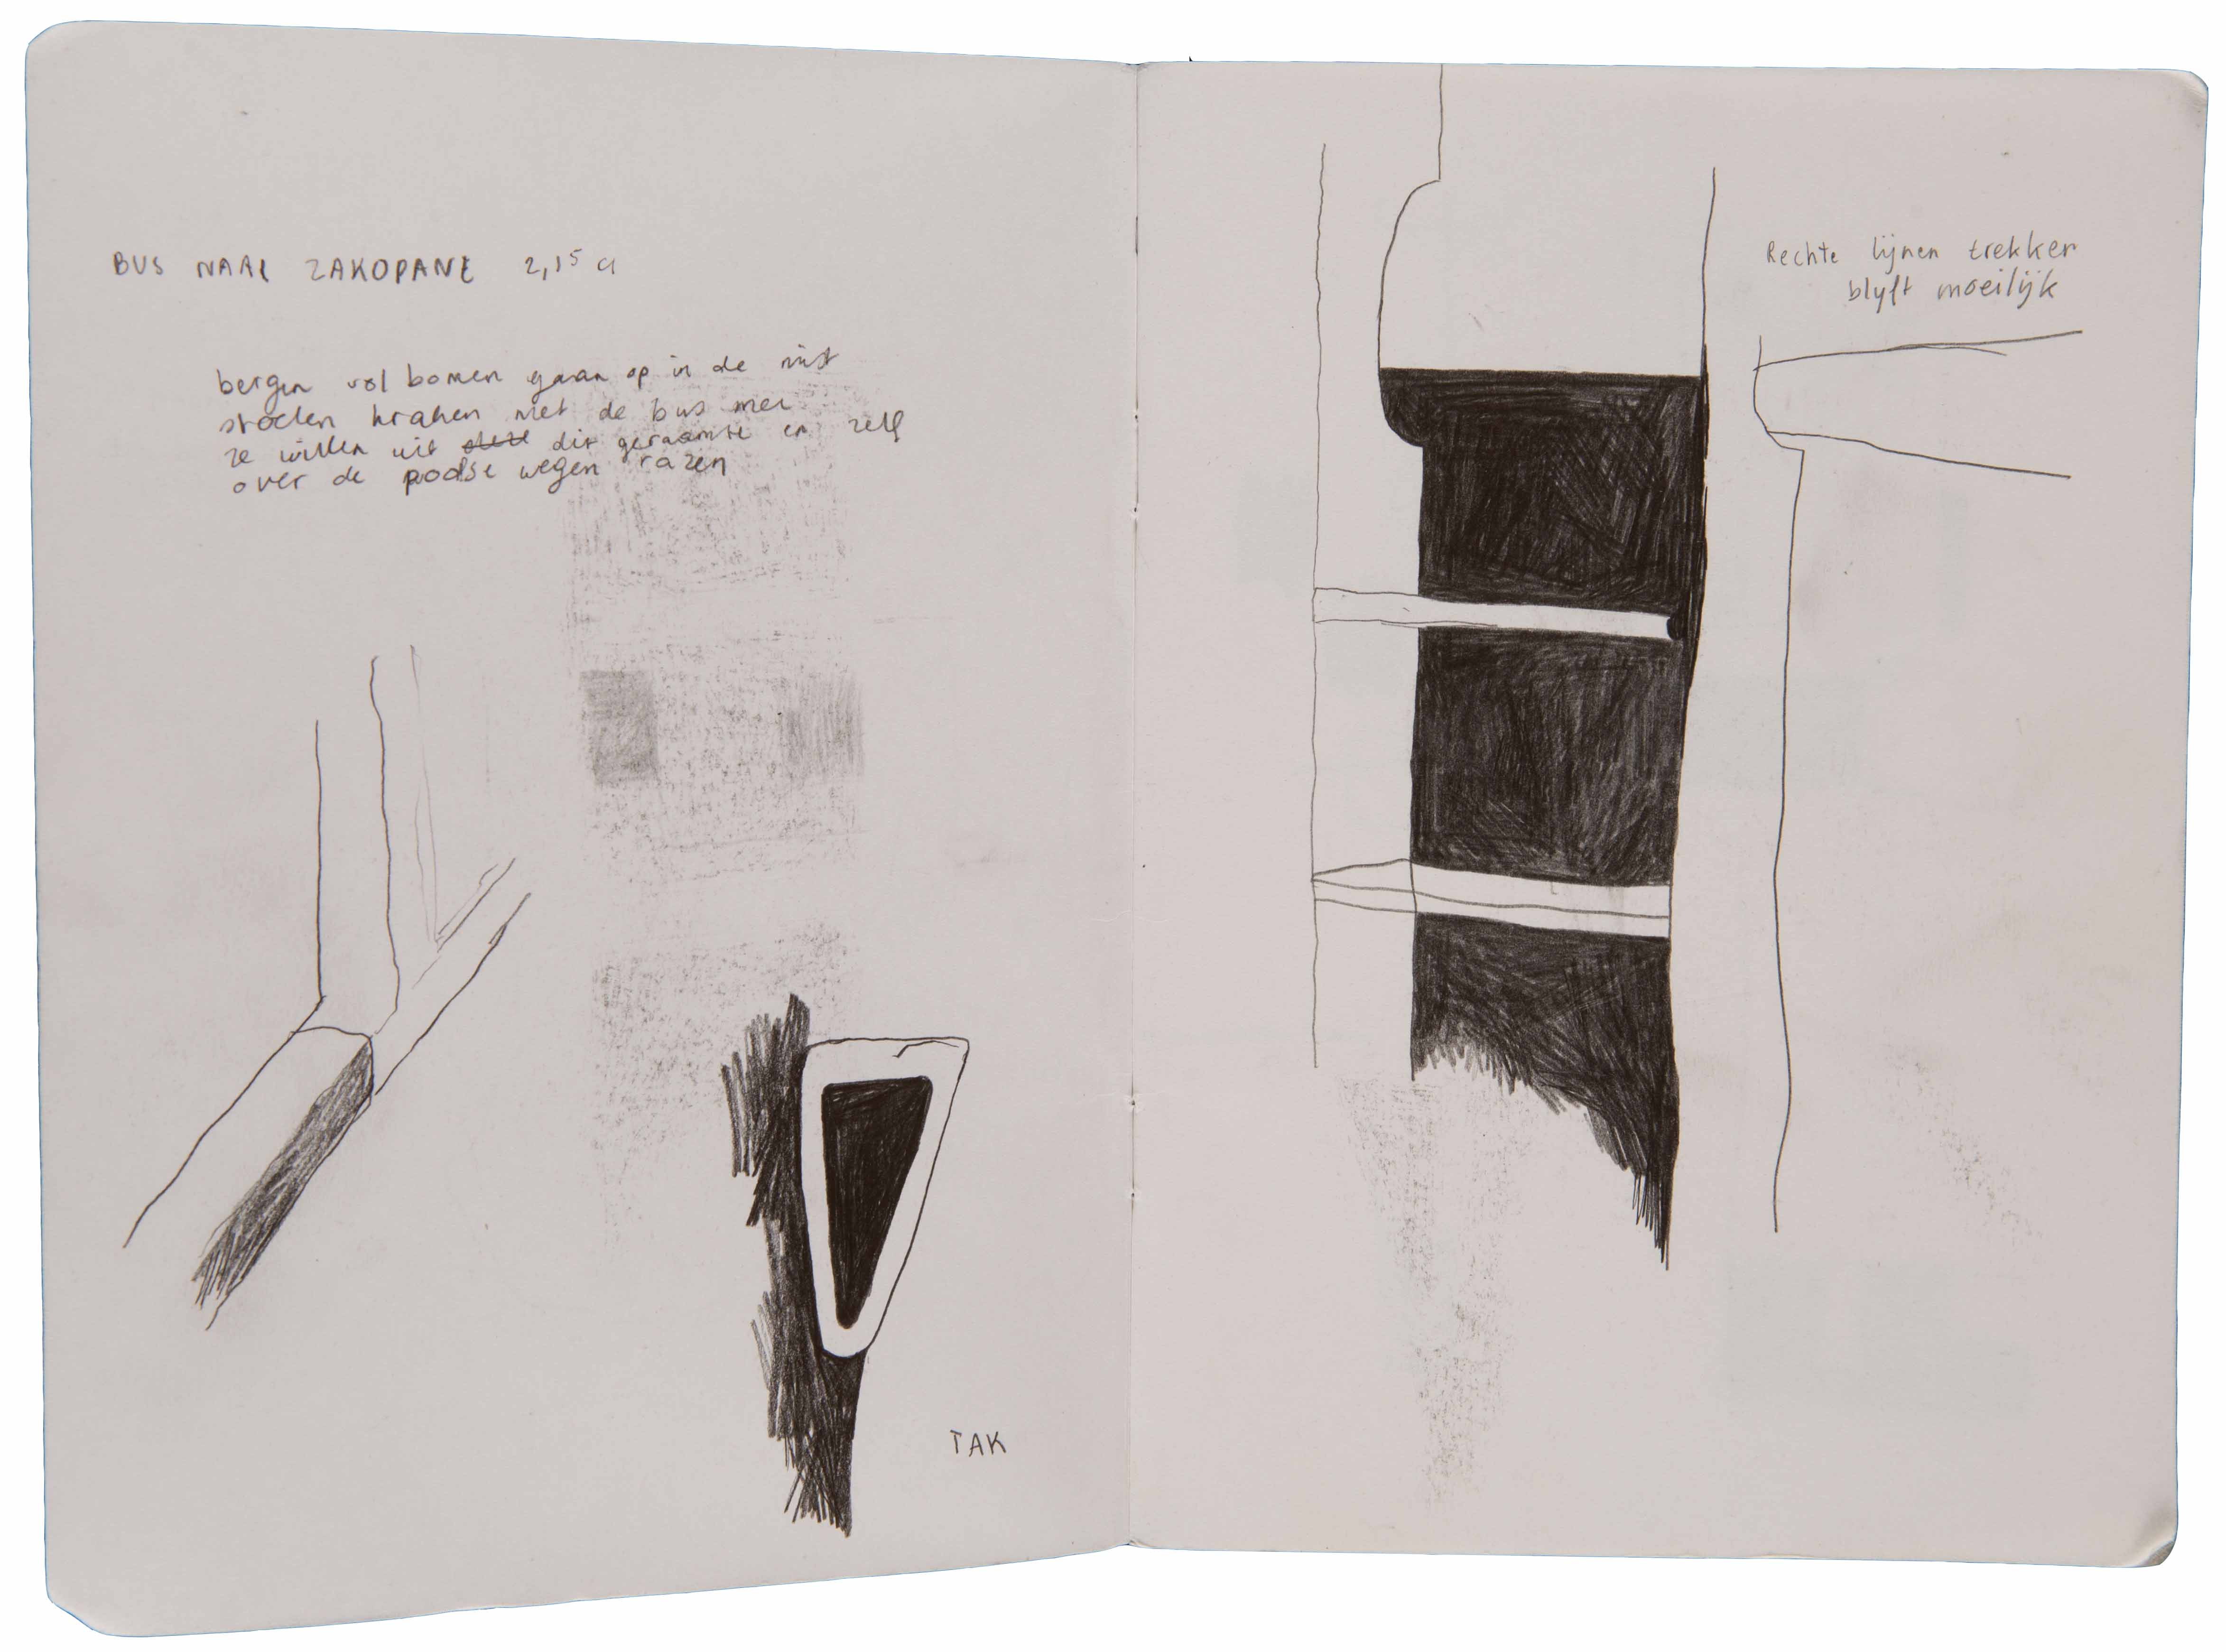 BUS NAAR ZAKOPANE 2,15 u
bergen vol bomen gaan op in de mist
stoelen kraken met de bus mee
ze willen uit dit geraamte en zelf
over de poolse wegen razen
TAK
Rechte lijnen trekken
blijft moeilijk